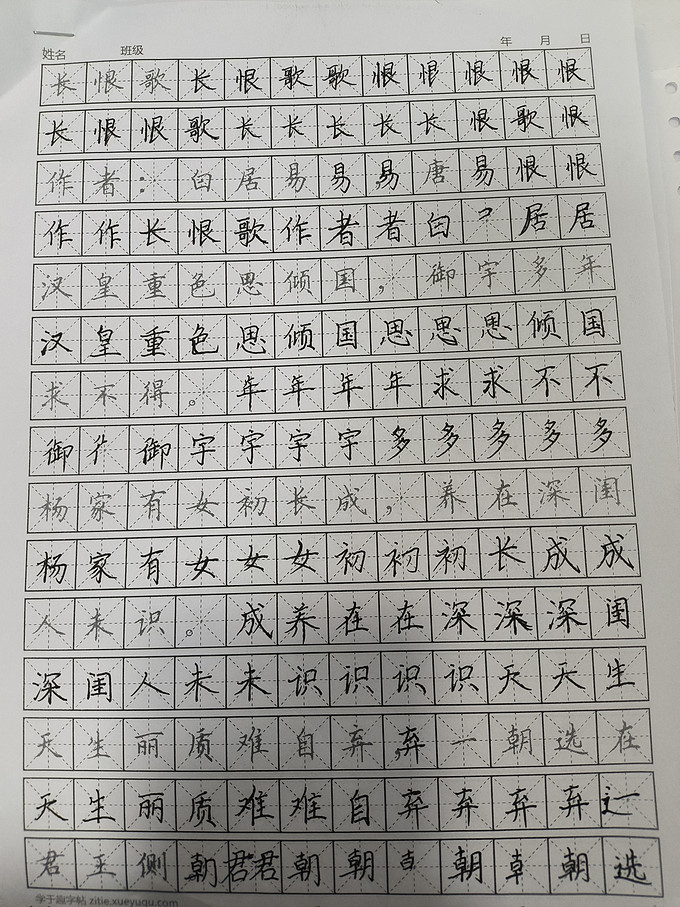 姓名 班级 年 月 日
长恨歌长恨歌歌恨恨恨恨恨
长恨恨歌长长长长长恨歌恨
作者：白居易易易唐易恨恨
作作长恨歌作者者白居居
汉皇重色思倾国，御宇多年
汉皇重色思倾国思思思倾国
求不得。年年年年求求不不
御御宇宇宇宇多多多多多
杨家有女初长成，养在深闺
杨家有女女女初初初长成成
人未识。成养在在深深深闺
深闺人未未识识识识天天生
天生丽质难自弃，弃一朝选在
天生丽质难难自弃弃弃弃
君王侧朝君君朝朝朝朝选
学于趣字帖 zitie.xueyuqu.com